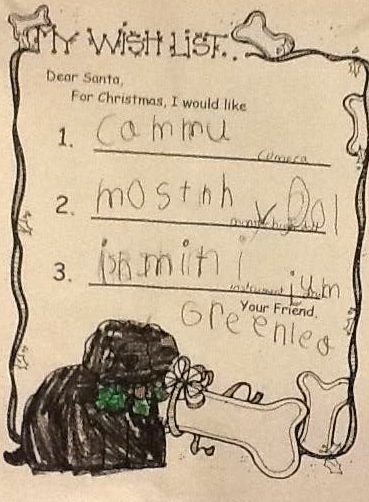 MY WISH LIST..
Dear Santa,
For Christmas, I would like
1. Cammu
camera
2. mostnh y Dol
monster high doll
3. inmini jym
instrument
Your Friend,
Greenleo